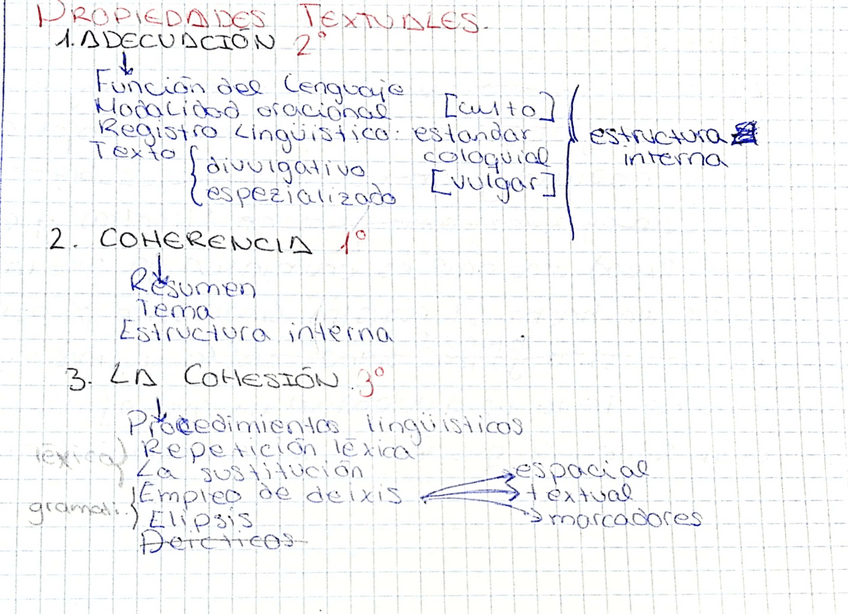 PROPIEDADES TEXTUALES.
1. ADECUACIÓN 2º
Función del lenguaje
Modalidad oracional [culto]
Registro Lingüístico: estandar estructura
Texto { divulgativo coloquial interna
{ espezializado [vulgar]
2. COHERENCIA 1º
Resumen
Tema
Estructura interna
3. LA COHESIÓN. 3º
Procedimientos lingüisticos
léxica) Repetición léxica
La sustitución espacial
Empleo de deixis textual
gramati.) Elipsis marcadores
Deicticos